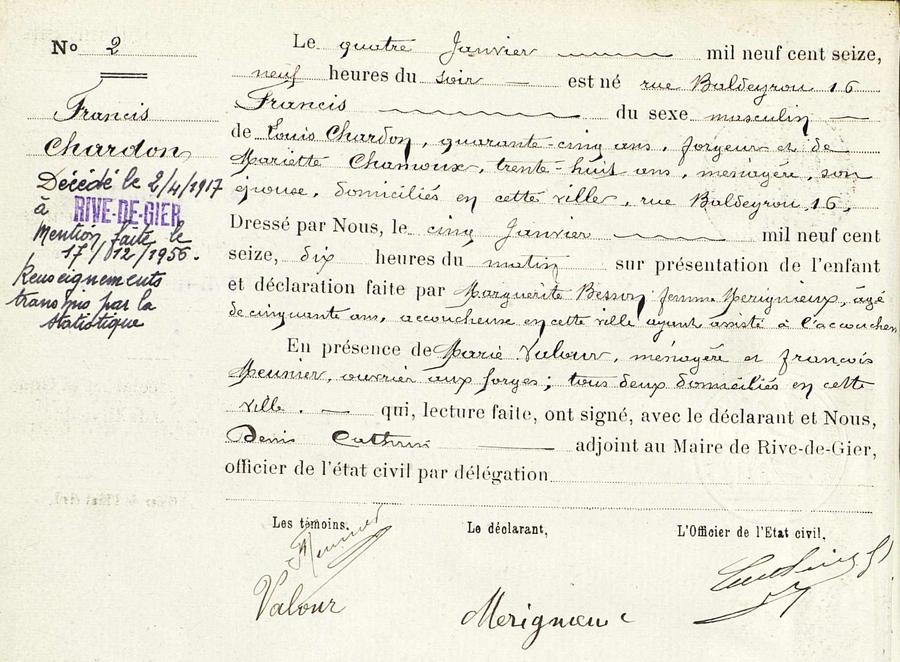 No 2
Francis
Chardon
Décédé le 2/4/1917
à RIVE-DE-GIER
Mention faite le
17/12/1956.
Renseignements
transmis par la
Statistique
Le quatre Janvier mil neuf cent seize,
neuf heures du soir est né rue Baldeyrou 16
Francis du sexe masculin
de Louis Chardon, quarante-cinq ans, forgeur et de
Mariette Chamoux, trente-huit ans, ménagère, son
épouse, domiciliés en cette ville, rue Baldeyrou, 16,
Dressé par Nous, le cinq Janvier mil neuf cent
seize, dix heures du matin sur présentation de l'enfant
et déclaration faite par Marguerite Besson femme Merignieux, âgé
de cinquante ans, accoucheuse en cette ville ayant assisté à l'accouchem
En présence de Marie Valour, ménagère et françois
Meunier, ouvrier aux forges; tous deux domiciliés en cette
ville. qui, lecture faite, ont signé, avec le déclarant et Nous,
Denis adjoint au Maire de Rive-de-Gier,
officier de l'état civil par délégation
Les témoins, Le déclarant, L'Officier de l'Etat civil,
Meunier
Valour
Merignieux